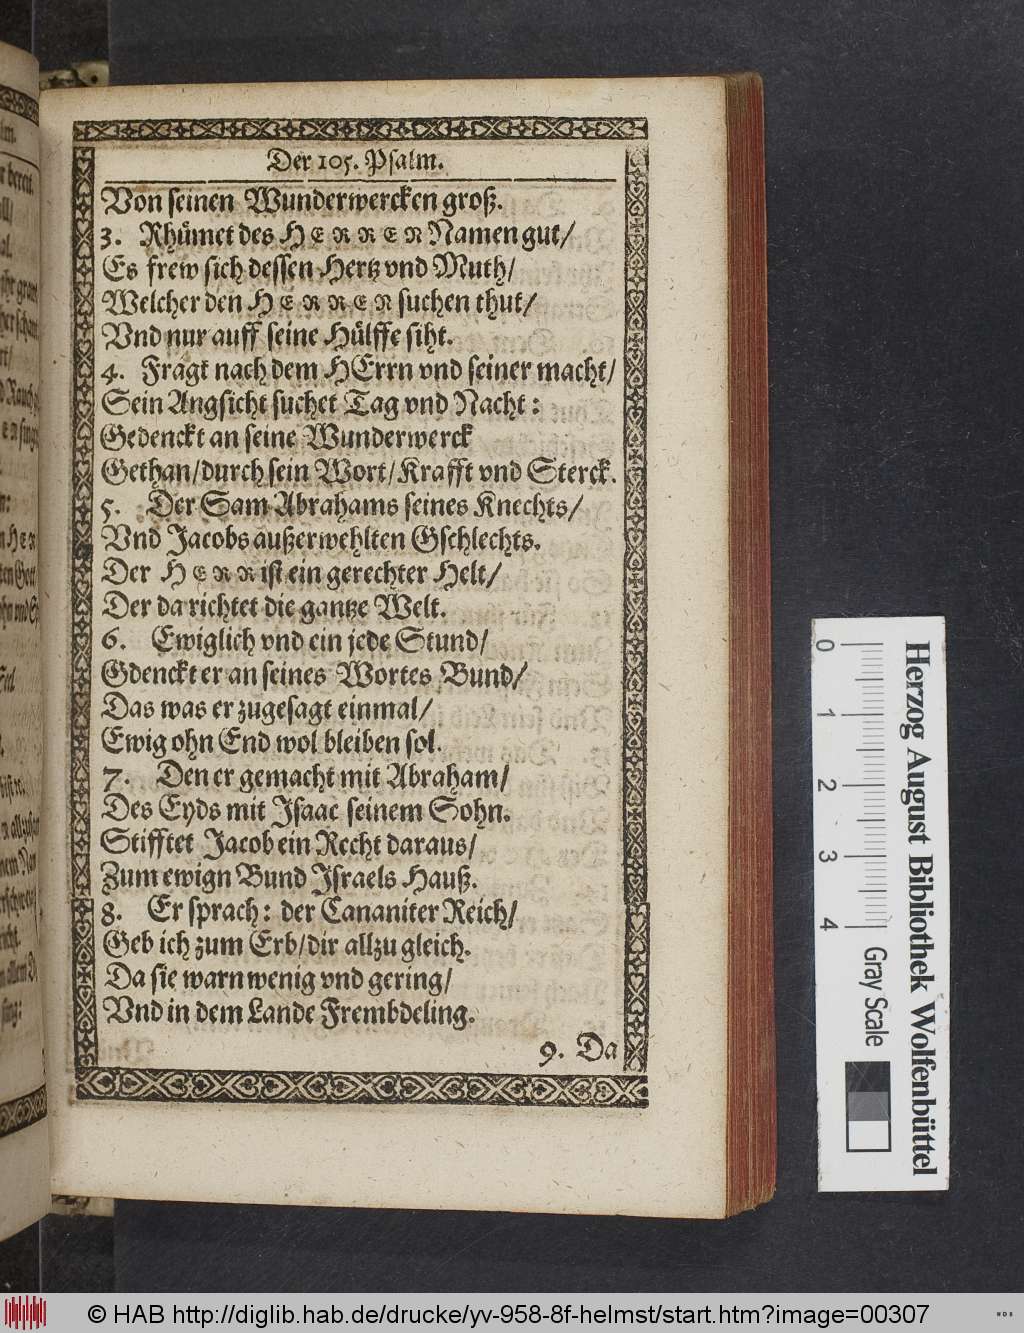 Der 105. Psalm.
Von seinen Wunderwercken groß.
3. Rhümet des HERREN Namen gut/
Es frew sich dessen Hertz vnd Muth/
Welcher den HERREN suchen thut/
Vnd nur auff seine Hülffe siht.
4. Fragt nach dem HErrn vnd seiner macht/
Sein Angsicht suchet Tag vnd Nacht:
Gedenckt an seine Wunderwerck
Gethan/durch sein Wort/Krafft vnd Sterck.
5. Der Sam Abrahams seines Knechts/
Vnd Jacobs außerwehlten Gschlechts.
Der HERR ist ein gerechter Helt/
Der da richtet die gantze Welt.
6. Ewiglich vnd ein jede Stund/
Gdenckt er an seines Wortes Bund/
Das was er zugesagt einmal/
Ewig ohn End wol bleiben sol.
7. Den er gemacht mit Abraham/
Des Eyds mit Isaac seinem Sohn.
Stifftet Jacob ein Recht daraus/
Zum ewign Bund Israels Hauß.
8. Er sprach: der Cananiter Reich/
Geb ich zum Erb/dir allzu gleich.
Da sie warn wenig vnd gering/
Vnd in dem Lande Frembdeling.
9. Da
Herzog August Bibliothek Wolfenbüttel
0 1 2 3 4 Gray Scale
© HAB http://diglib.hab.de/drucke/yv-958-8f-helmst/start.htm?image=00307